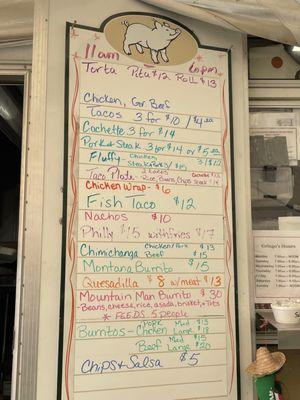 11am 6pm
Torta Pita $12 Roll $13
Chicken, Gr Beef
Tacos 3 for $10 / $4 ea
Cachette 3 for $14
Pork & Steak 3 for $14 or $5 ea
Fluffy - Chicken 3/$12
Steak & Pork 3/$15
Taco Plate - 2 tacos Cachette $15
Rice, Beans, Chips Steak $14
Chicken Wrap - $6
Fish Taco $12
Nachos $10
Philly $15 with fries $17
Chimichanga Chicken/Pork $13
Beef $15
Montana Burrito $15
Quesadilla $8 w/meat $13
Mountain Man Burrito $30
- Beans, cheese, rice, asada, brisket, + tots
* FEEDS 5 people
Burritos - Pork Med $13
Chicken Large $18
Beef Med $15
Large $20
Chips & Salsa $5
Gringo's Hours
Monday
Tuesday
Wednesday
Thursday
Friday